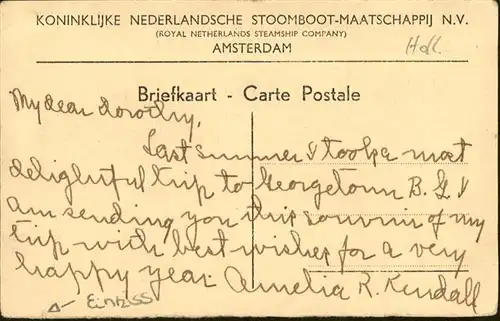 KONINKLIJKE NEDERLANDSCHE STOOMBOOT-MAATSCHAPPIJ N.V.
(ROYAL NETHERLANDS STEAMSHIP COMPANY)
AMSTERDAM
Holl.
Briefkaart - Carte Postale
My dear Dorothy,
Last summer I took a most
delightful trip to Georgetown B.G. I
am sending you this souvenir of my
trip with best wishes for a very
happy year. Amelia R. Kendall
Einriss